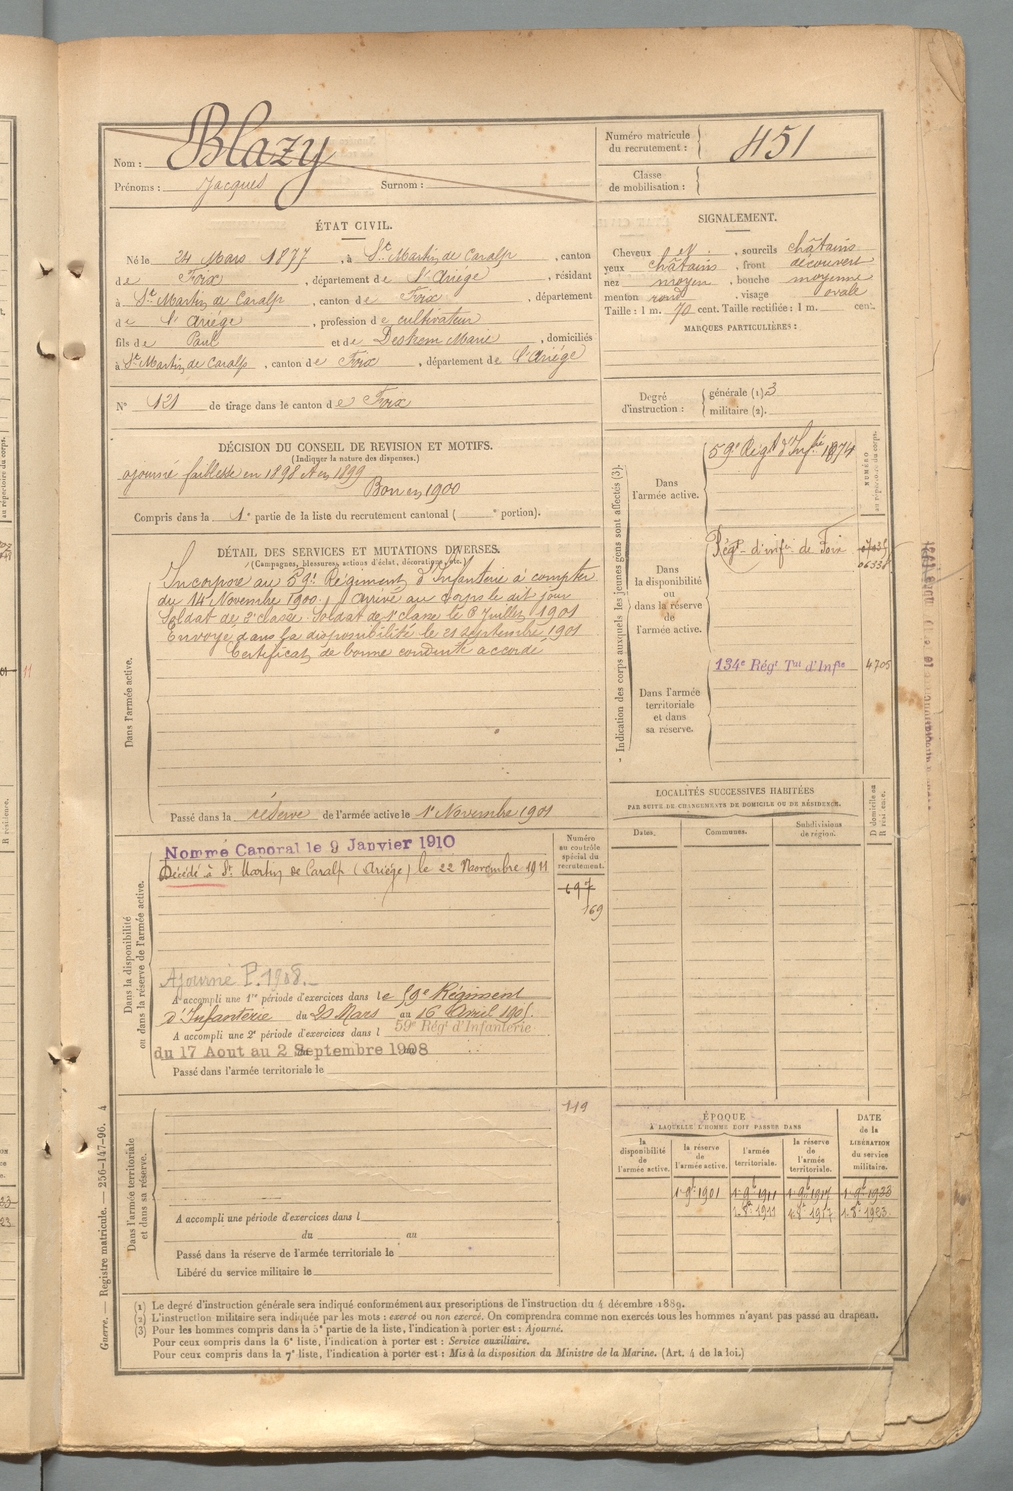 Nom : Blazy
Prénoms : Jacques Surnom :
Numéro matricule du recrutement : 451
Classe de mobilisation :
ÉTAT CIVIL.
Né le 24 Mars 1877, à St Martin de Caralp, canton
de Foix, département de l'Ariége, résidant
à St Martin de Caralp, canton de Foix, département
de l'Ariége, profession de cultivateur
fils de Paul et de Marie, domiciliés
à St Martin de Caralp, canton de Foix, département de l'Ariége
N° 121 de tirage dans le canton de Foix
SIGNALEMENT.
Cheveux et, sourcils châtains
yeux châtains, front découvert
nez moyen, bouche moyenne
menton rond, visage ovale
Taille : 1 m. 70 cent. Taille rectifiée : 1 m. cent.
MARQUES PARTICULIÈRES :
Degré d'instruction : générale (1) 3
militaire (2).
DÉCISION DU CONSEIL DE REVISION ET MOTIFS.
(Indiquer la nature des dispenses.)
ajourné faiblesse en 1898 et en 1899
Bon en 1900
Compris dans la 1e partie de la liste du recrutement cantonal ( e portion).
DÉTAIL DES SERVICES ET MUTATIONS DIVERSES.
(Campagnes, blessures, actions d'éclat, décorations, etc.)
Dans l'armée active.
Incorporé au 59e Régiment d'Infanterie à compter
du 14 Novembre 1900. Arrivé au corps le dit jour
Soldat de 2e classe. Soldat de 1e classe le 6 Juillet 1901
Envoyé dans la disponibilité le 21 septembre 1901
Certificat de bonne conduite accordé
Passé dans la réserve de l'armée active le 1er Novembre 1901
Indication des corps auxquels les jeunes gens sont affectés (3).
NUMÉRO au répertoire du corps.
Dans l'armée active.
59e Régt d'Infie 1874
Dans la disponibilité ou dans la réserve de l'armée active.
Régt d'infie de Foix
Dans l'armée territoriale et dans sa réserve.
134e Régt Tal d'Infie 4705
LOCALITÉS SUCCESSIVES HABITÉES
PAR SUITE DE CHANGEMENTS DE DOMICILE OU DE RÉSIDENCE.
Dates. Communes. Subdivisions de région. D domicile ou R résidence.
Dans la disponibilité ou dans la réserve de l'armée active.
Numéro au contrôle spécial du recrutement.
Nommé Caporal le 9 Janvier 1910
Décédé à St Martin de Caralp (Ariége) le 22 Novembre 1911
697
169
Ajourné P. 1908.
A accompli une 1re période d'exercices dans le 59e Régiment
d'Infanterie du 20 Mars au 16 Avril 1905.
A accompli une 2e période d'exercices dans l 59e Régt d'Infanterie
du 17 Aout au 2 Septembre 1908
Passé dans l'armée territoriale le
119
Dans l'armée territoriale et dans sa réserve.
A accompli une période d'exercices dans l
du au
Passé dans la réserve de l'armée territoriale le
Libéré du service militaire le
ÉPOQUE
À LAQUELLE L'HOMME DOIT PASSER DANS
DATE de la LIBÉRATION du service militaire.
la disponibilité de l'armée active. la réserve de l'armée active. l'armée territoriale. la réserve de l'armée territoriale.
1er 9bre 1901 1er 9bre 1911 1er 9bre 1917 1er 9bre 1923
1er 8bre 1911 1er 8bre 1917 1er 8bre 1923
(1) Le degré d'instruction générale sera indiqué conformément aux prescriptions de l'instruction du 4 décembre 1889.
(2) L'instruction militaire sera indiquée par les mots : exercé ou non exercé. On comprendra comme non exercés tous les hommes n'ayant pas passé au drapeau.
(3) Pour les hommes compris dans la 5e partie de la liste, l'indication à porter est : Ajourné.
Pour ceux compris dans la 6e liste, l'indication à porter est : Service auxiliaire.
Pour ceux compris dans la 7e liste, l'indication à porter est : Mis à la disposition du Ministre de la Marine. (Art. 4 de la loi.)
Guerre. — Registre matricule. — 256-147-96. 4